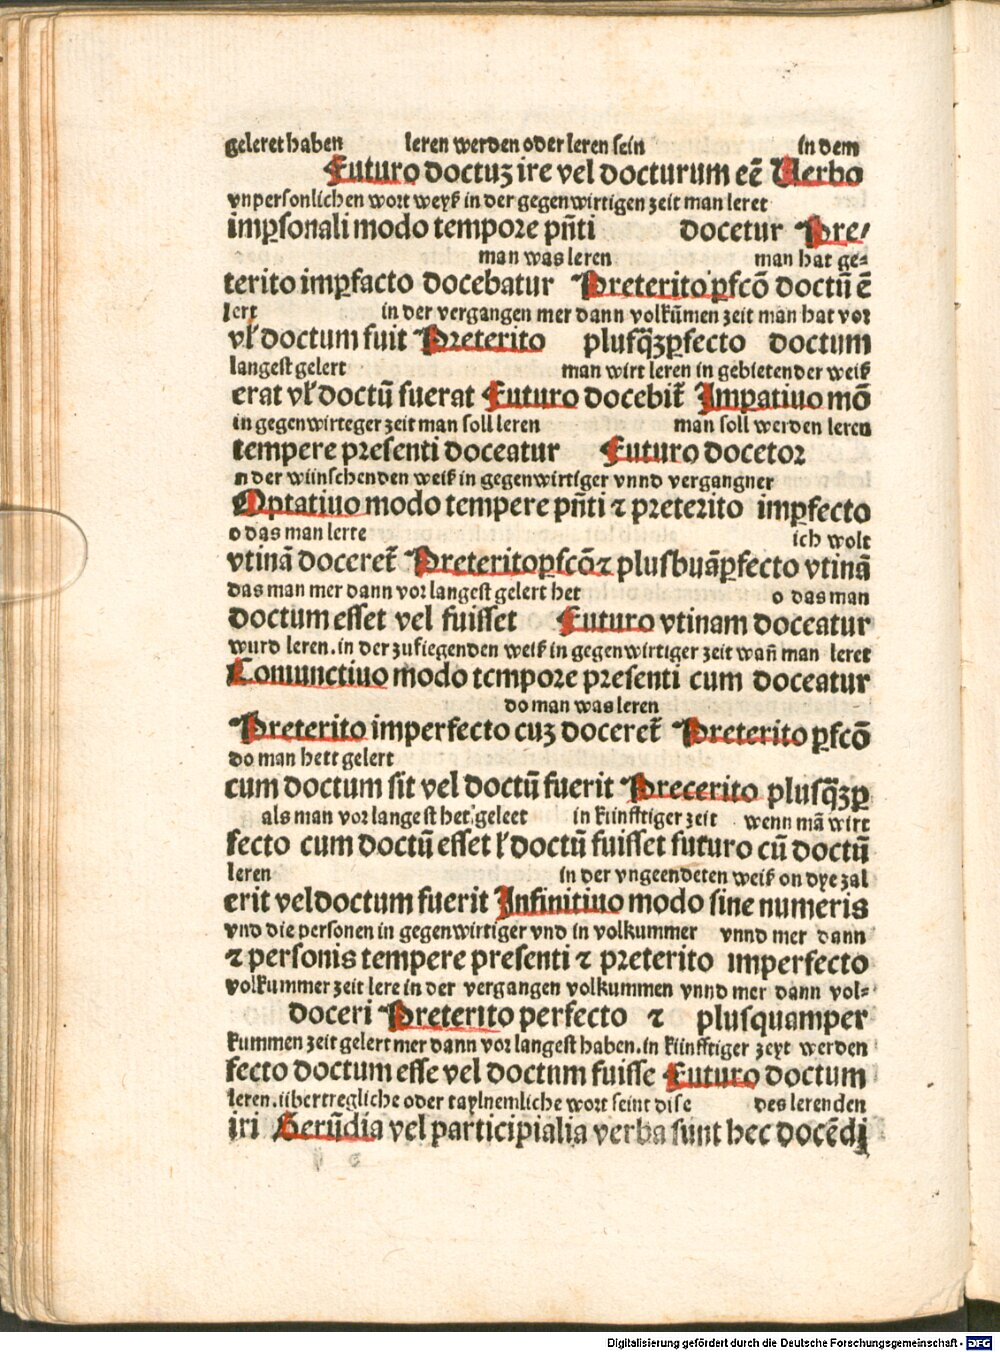 geleret haben leren werden oder leren sein in dem
Futuro doctuʒ ire vel docturum eē Uerbo
vnpersonlichen wort weyß in der gegenwirtigen zeit man leret
imꝑsonali modo tempoꝛe pñti docetur Pre/
man was leren man hat ge⸗
terito imꝑfacto docebatur Preterito ꝑfcō doctū ē
lert in der vergangen mer dann volkūmen zeit man hat voꝛ
vł doctum fuit Pꝛeterito plusq̄ʒꝑfecto doctum
langest gelert man wirt leren in gebietender weiß
erat vł doctū fuerat Futuro docebit᷑ Impatiuo mō
in gegenwirteger zeit man soll leren man soll werden leren
tempere pꝛesenti doceatur Futuro docetoꝛ
n der wünschenden weiß in gegenwirtiger vnnd vergangner
Optatiuo modo tempere pñti ⁊ pꝛeterito imꝑfecto
o das man lerte ich wolt
vtinā doceret᷑ Preterito ꝑfcō ⁊ plusbuāꝑfecto vtinā
das man mer dann voꝛ langest gelert het o das man
doctum esset vel fuisset Futuro vtinam doceatur
wurd leren. in der zufiegenden weiß in gegenwirtiger zeit wañ man leret
Coniunctiuo modo tempoꝛe pꝛesenti cum doceatur
do man was leren
Preterito imperfecto cuʒ doceret᷑ Preterito ꝑfcō
do man hett gelert
cum doctum sit vel doctū fuerit Precerito plusq̄ʒꝑ
als man voꝛ langest het geleet in künfftiger zeit wenn mā wirt
fecto cum doctū esset ł doctū fuisset futuro cū doctū
leren in der vngeendeten weiß on dye zal
erit vel doctum fuerit Infinitiuo modo sine numeris
vnd die personen in gegenwirtiger vnd in volkummer vnnd mer dann
⁊ personis tempere presenti ⁊ pꝛeterito imperfecto
volkummer zeit lere in der vergangen volkummen vnnd mer dann vol⸗
doceri Preterito perfecto ⁊ plusquamper
kummen zeit gelert mer dann voꝛ langest haben. in künfftiger zeyt werden
fecto doctum esse vel doctnm fuisse Futuro doctum
leren. übertregliche oder taylnemliche woꝛt seint dise des lerenden
iri Gerūdia vel participialia verba sunt hec docēdi